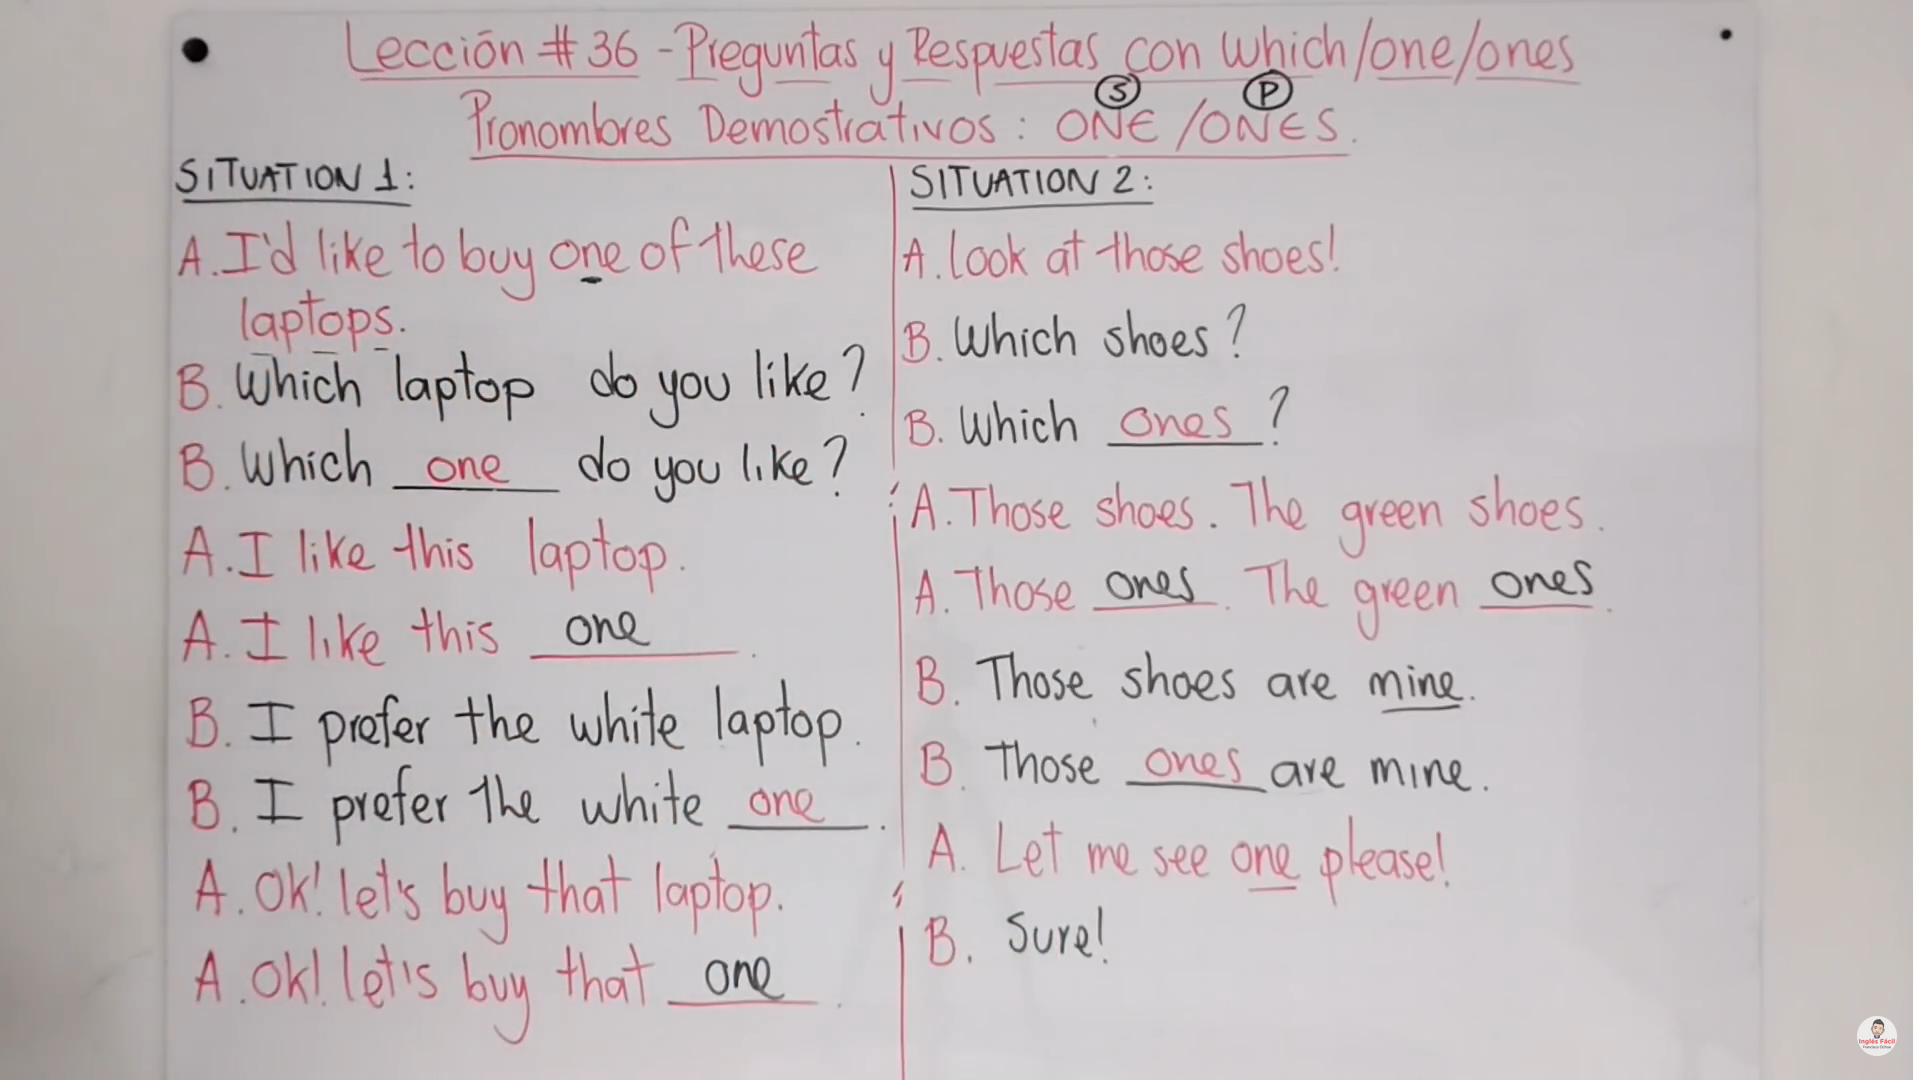 Lección # 36 - Preguntas y Respuestas con which/one/ones
S P
Pronombres Demostrativos : ONE /ONES.
SITUATION 1:
A. I'd like to buy one of these
laptops.
B. Which laptop do you like?
B. Which one do you like?
A. I like this laptop.
A. I like this one.
B. I prefer the white laptop.
B. I prefer the white one.
A. OK! let's buy that laptop.
A. OK! let's buy that one.
SITUATION 2:
A. look at those shoes!
B. Which shoes?
B. Which ones?
A. Those shoes. The green shoes.
A. Those ones. The green ones.
B. Those shoes are mine.
B. Those ones are mine.
A. Let me see one please!
B. Sure!
Inglés Fácil